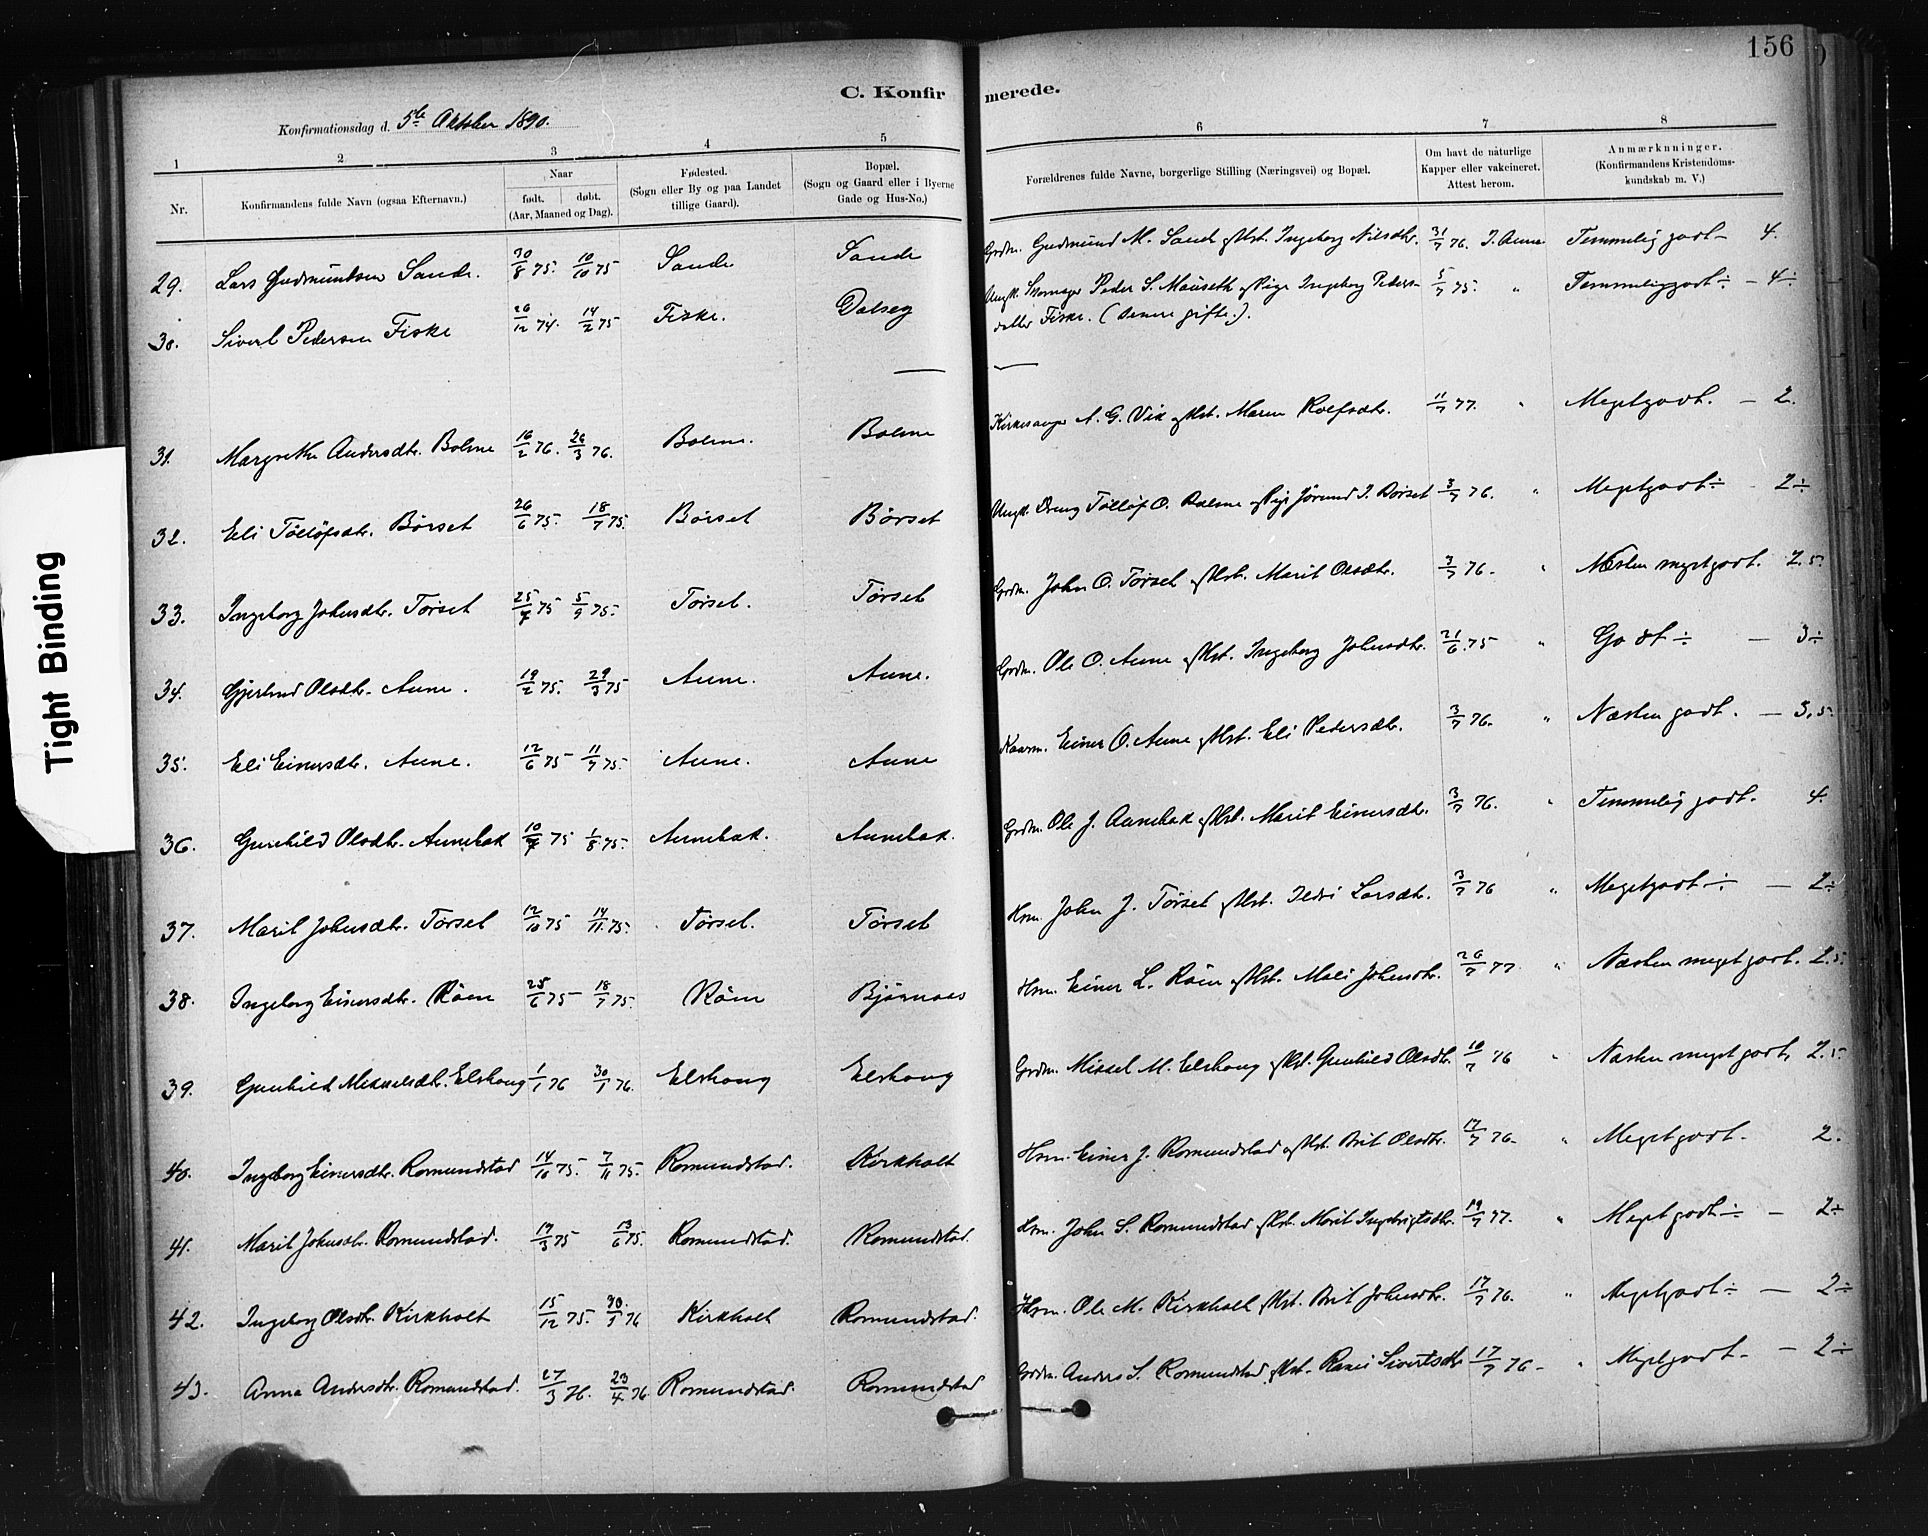 156
C. Konfirmerede.
Konfirmationsdag d. 5te Oktober 1890.
1 2 3 4 5 6 7 8
Nr. Konfirmandens fulde Navn (ogsaa Efternavn). Naar født. døbt. (Aar, Maaned og Dag). Fødested. (Sogn eller By og paa Landet tillige Gaard). Bopæl. (Sogn og Gaard eller i Byerne Gade og Hus-No.) Forældrenes fulde Navne, borgerlige Stilling (Næringsvei) og Bopæl. Om havt de naturlige Kapper eller vakcineret. Attest herom. Anmærkninger. (Konfirmandens Kristendomskundskab m. V.)
29. Lars Gudmundsen Sande. 30/8 75. 10/10 75 Sande Sande Grdm. Gudmund M. Sande og Hst. Ingeborg Nilsdtr. 31/7 76. I. Aune Temmelig godt – 4.
30. Sivert Pedersen Fiske 26/12 74. 14/2 75 Fiske. Dalseg Ungk. Skomager Peder S. Mauseth og Pige Ingeborg Peders- 5/7 75. " Temmeliggodt ÷ – 4÷
datter Fiske. (senere gifte.).
31. Margrethe Andersdtr. Bolme 16/2 76. 26/3 76. Bolme. Bolme Kirkesanger A. G. Vik og Hst. Maren Roefsdtr. 11/7 77. " Megetgodt. – 2.
32. Eli Tølløfsdtr. Børset 26/6 75. 18/7 75. Børset Børset Ungk. Dreng Tølløf O. Bolme og Pige Jørund I. Børset 3/7 76. " Megetgodt ÷ 2÷
33. Ingeborg Johnsdtr. Tørset 25/7 75 5/9 75. Tørset. Tørset Grdm. John O. Tørset og Hst. Marit Olsdtr. 3/7 76. " Næsten megetgodt. 2.5.
34. Gjertrud Olsdtr. Aune. 19/2 75. 29/3 75 Aune. Aune. Grdm. Ole O. Aune og Hst. Ingeborg Johnsdtr. 21/6 75 " Godt ÷ – 3÷
35. Eli Einersdtr. Aune. 12/6 75 11/7 75. Aune. Aune Kaarm. Einer O. Aune og Hst. Eli Pedersdtr. 3/7 76. " Næsten godt. – 3,5.
36. Gunhild Olsdtr. Aunebak 10/7 75 1/8 75. Aunebak. Aunebak. Grdm. Ole J. Aunebak og Hst. Marit Einersdtr. 3/7 76. " Temmelig godt. 4.
37. Marit Johnsdtr. Tørset 12/10 75 14/11 75. Tørset. Tørset Hsm. John J. Tørset og Hst. Sedsi Larsdtr. 3/7 76 " Megetgodt ÷ – 2÷
38. Ingeborg Einersdtr. Røen 25/6 75 18/7 75. Røen Bjørnaas Hsm. Einer L. Røen og Hst. Mali Johnsdtr. 26/7 77. " Næsten meget godt. 2.5.
39. Gunhild Mikkelsdtr. Elshaug 1/1 76 30/1 76. Elshaug Elshaug Grdm. Mikkel M. Elshaug og Hst. Gunhild Olsdtr. 10/7 76 " Næsten megetgodt, 2.5.
40. Ingeborg Einersdtr. Romundstad 14/10 75. 7/11 75. Romundstad. Kirkholt Hsm. Einer J. Romundstad og Hst. Brit Olsdtr. 17/7 76. " Megetgodt. 2.
41. Marit Johnsdtr. Romundstad. 17/3 75 13/6 75. Romundstad. Romundstad. Hsm. John S. Romundstad og Hst. Marit Ingebrigtsdtr. 19/7 77. " Megetgodt ÷ – 2÷
42. Ingeborg Olsdtr. Kirkholt 15/12 75. 30/1 76 Kirkholt Romundstad. Hsm. Ole M. Kirkholt og Hst. Brit Johnsdtr. 17/7 76. " Megetgodt ÷ – 2÷
43. Anna Andersdtr. Romundstad. 27/3 76. 23/4 76. Romundstad. Romundstad Grdm. Anders S. Romundstad og Hst. Ranei Sivertsdtr 17/7 76 – " Megetgodt. – 2÷
Tight Binding